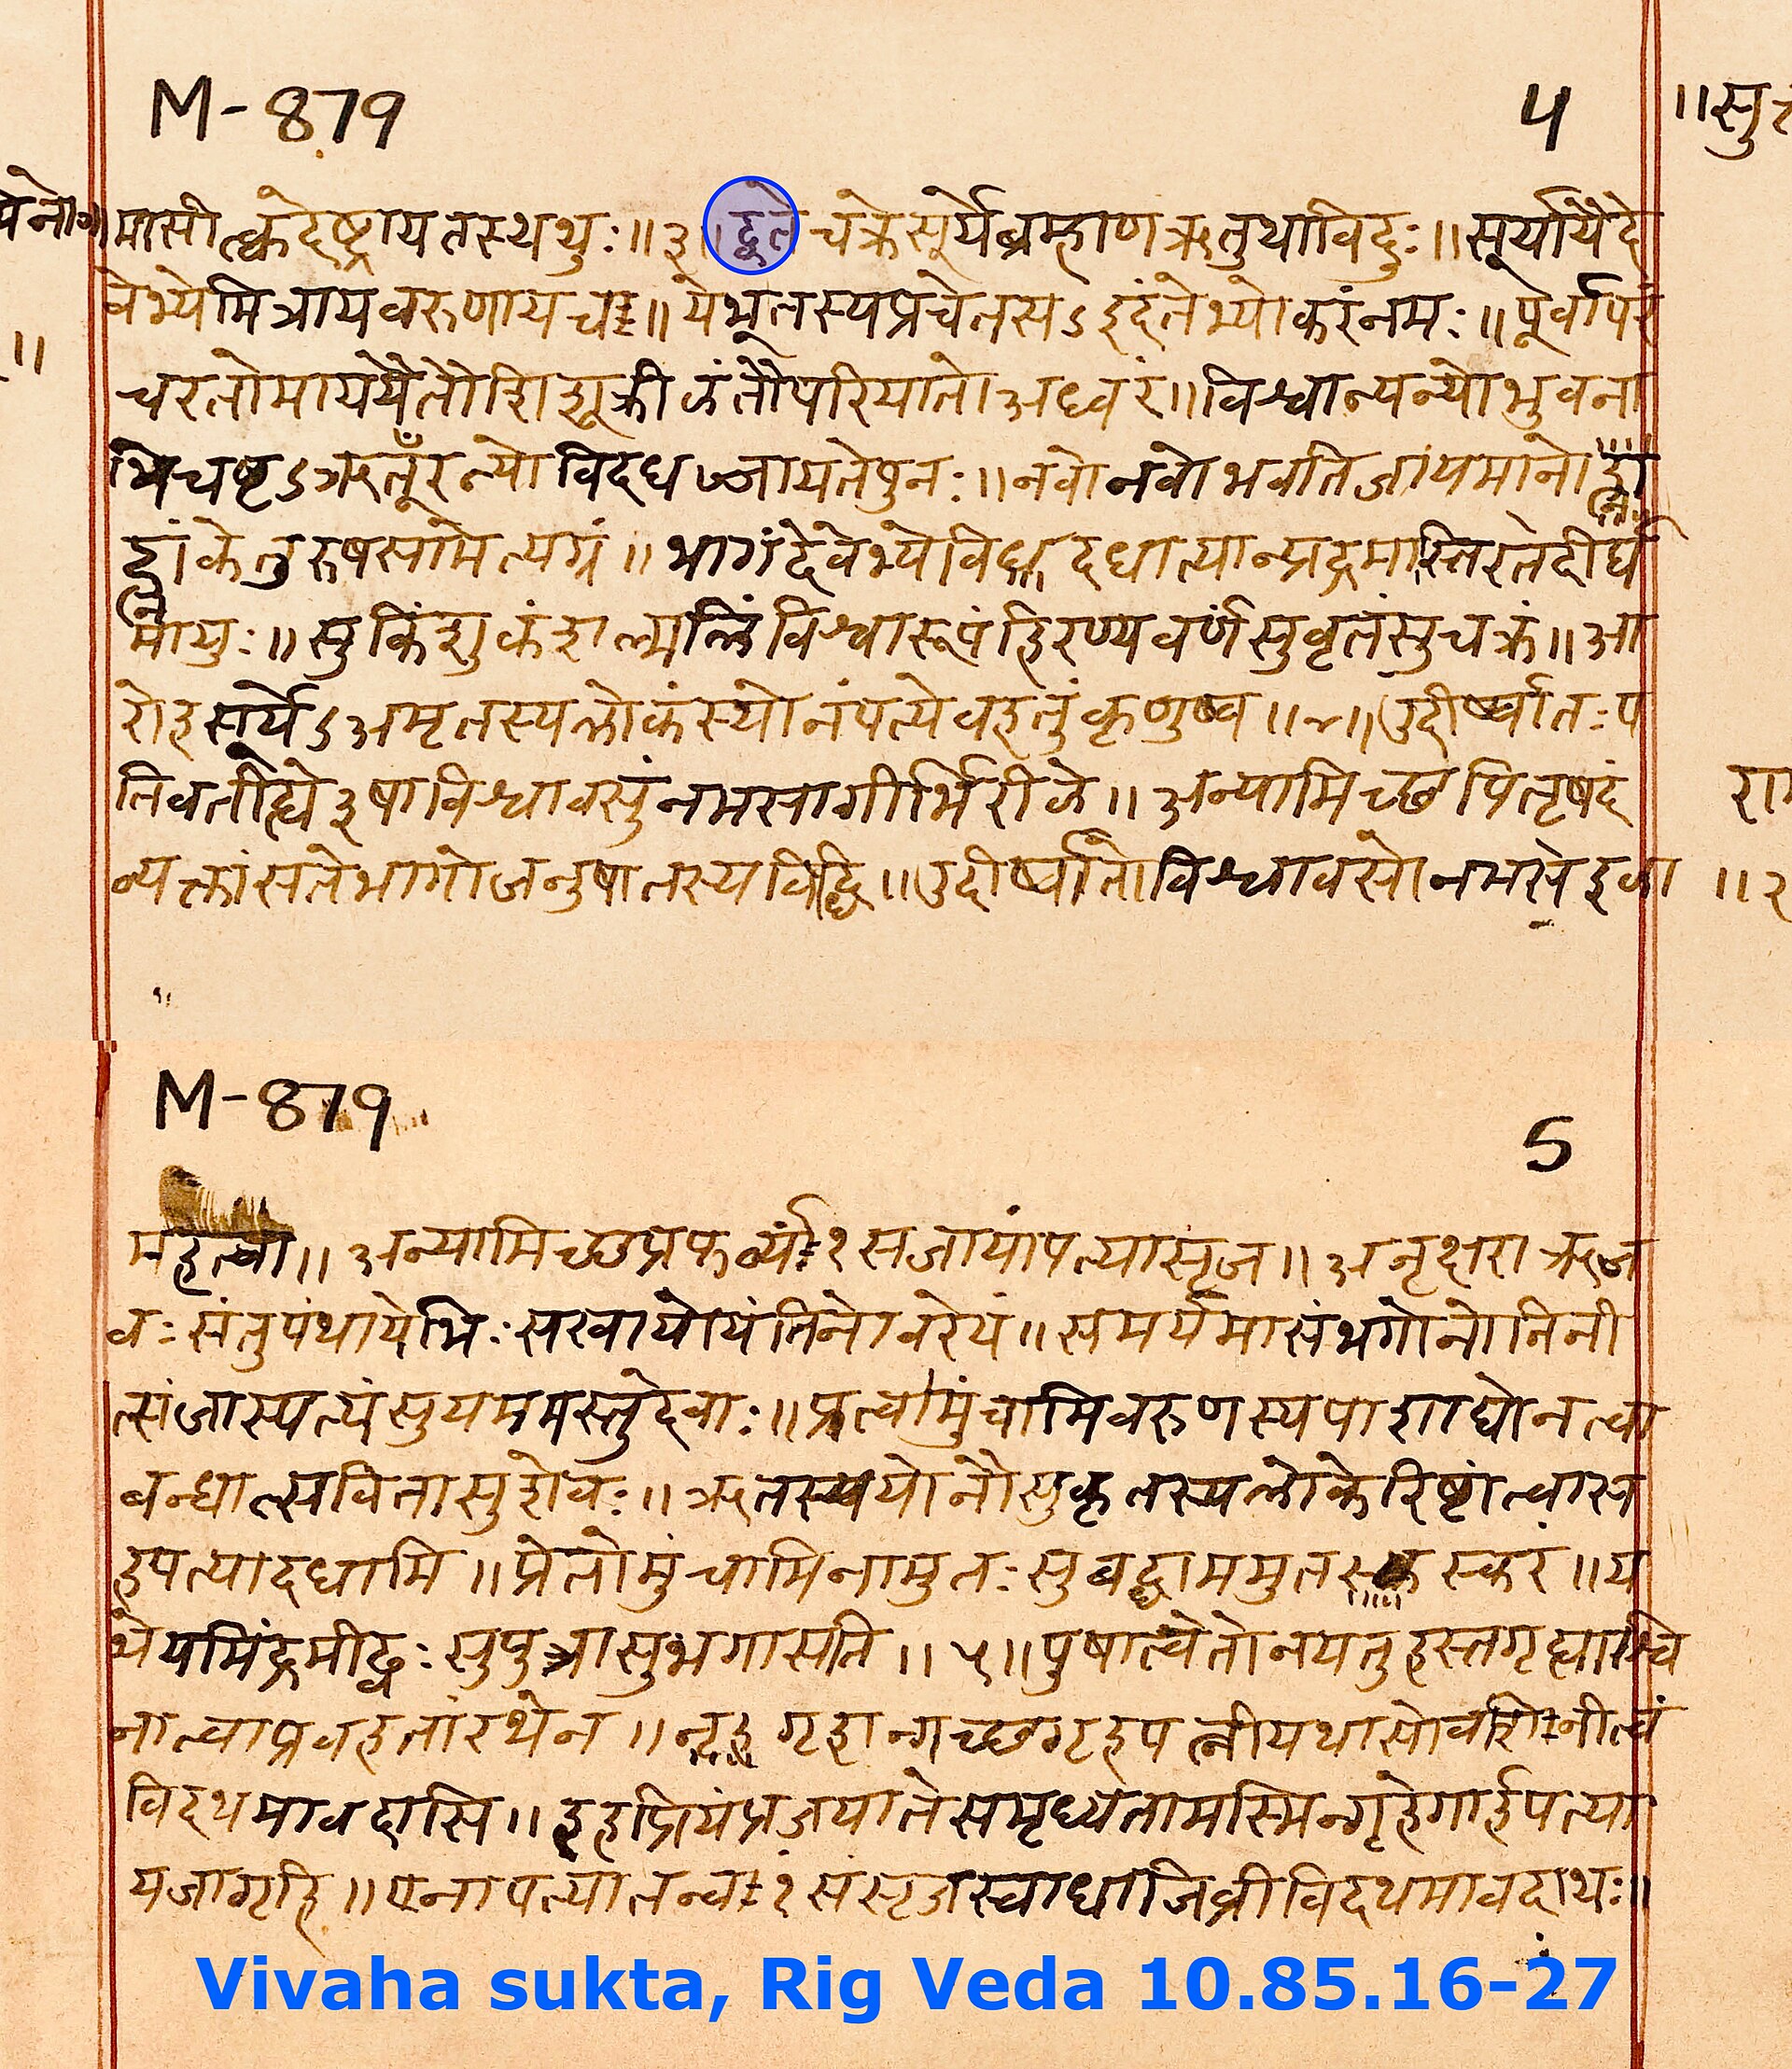 M-879
4
॥सु
मासीत्क्वदेष्ट्रायतस्थथुः॥३॥द्वेते चक्रेसूर्येब्रम्हाणऋतुथाविदुः॥सूर्यायैदे
वेभ्येमित्रायवरुणायच॥येभूतस्यप्रचेतसऽइदंतेभ्योकरंनमः॥पूर्वापरं
॥
चरतोमाययैतौशिशूक्रीळंतौपरियातोअध्वरं॥विश्वान्यन्योभुवना
भिचष्टऽऋतूँरन्योविदधज्जायतेपुनः॥नवोनवोभवतिजायमानो
ह्नांकेतुरुषसामेत्यग्रं॥भागंदेवेभ्येविदधात्यान्प्रद्रमास्तिरतेदीर्घ
मायुः॥सुकिंशुकंशल्मलिंविश्वारूपंहिरण्यवर्णंसुवृतंसुचक्रं॥आ
रोहसूर्येऽअमृतस्यलोकंस्योनंपत्येवहतुंकृणुष्व॥४॥उदीर्ष्वातःप
तिवतीह्ये३षाविश्वावसुंनमसागीर्भिरीळे॥अन्यामिच्छपितृषदं
रा
न्यक्तांसतेभागोजनुषातस्यविद्धि॥उदीर्ष्वातोविश्वावसोनमसेइळा
॥२
M-879
5
महेत्वा॥अन्यामिच्छप्रफर्व्यं१सजायांपत्यासृज॥अनृक्षराऋज
वःसंतुपंथायेभिःसखायोयंतिनोवरेयं॥समर्यमासंभगोनोनिनी
त्संजास्पत्यंसुयममस्तुदेवाः॥प्रत्वामुंचामिवरुणस्यपाशाद्येनत्वा
बन्धात्सवितासुशेवः॥ऋतस्ययोनौसुकृतस्यलोकेरिष्टांत्वास
हपत्यादधामि॥प्रेतोमुंचामिनामुतःसुबद्धाममुतस्करं॥य
थेयमिंद्रमीढ्वःसुपुत्रासुभगासति॥५॥पुषात्वेतोनयतुहस्तगृह्याश्वि
नात्वाप्रवहतांरथेन॥गृहान्गच्छगृहपत्नीयथासोवशिनीत्वं
विदथमावदासि॥इहप्रियंप्रजयातेसमृध्यतामस्मिन्गृहेगार्हपत्या
यजागृहि॥एनापत्यातन्वं१संसृजस्वाधाजिव्रीविदथमावदाथः॥
Vivaha sukta, Rig Veda 10.85.16-27